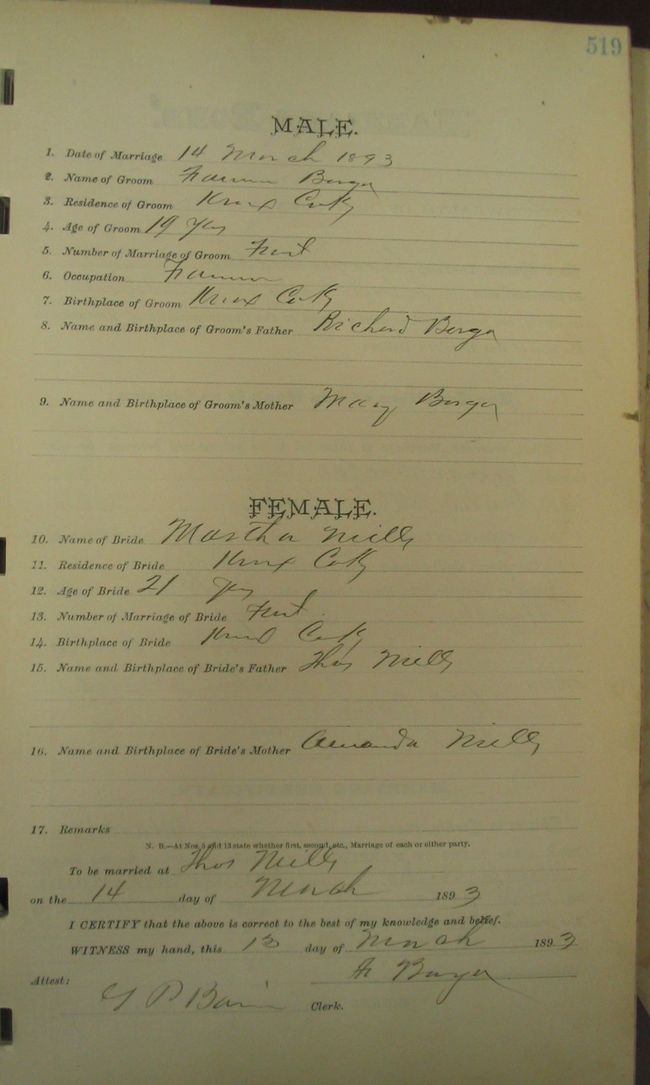 519
MALE.
1. Date of Marriage 14 March 1893
2. Name of Groom
3. Residence of Groom Knox Co Ky
4. Age of Groom 19 yrs
5. Number of Marriage of Groom First
6. Occupation Farmer
7. Birthplace of Groom Knox Co Ky
8. Name and Birthplace of Groom's Father Richard
9. Name and Birthplace of Groom's Mother Mary
FEMALE.
10. Name of Bride Martha Mills
11. Residence of Bride Knox Co Ky
12. Age of Bride 21 yrs
13. Number of Marriage of Bride First
14. Birthplace of Bride Knox Co Ky
15. Name and Birthplace of Bride's Father Thos Mills
16. Name and Birthplace of Bride's Mother Amanda Mills
17. Remarks
N. B.—At Nos. 5 and 13 state whether first, second, etc., Marriage of each or either party.
To be married at Thos Mills
on the 14 day of March 1893
I CERTIFY that the above is correct to the best of my knowledge and belief.
WITNESS my hand, this 13 day of March 1893
Attest:
Clerk.